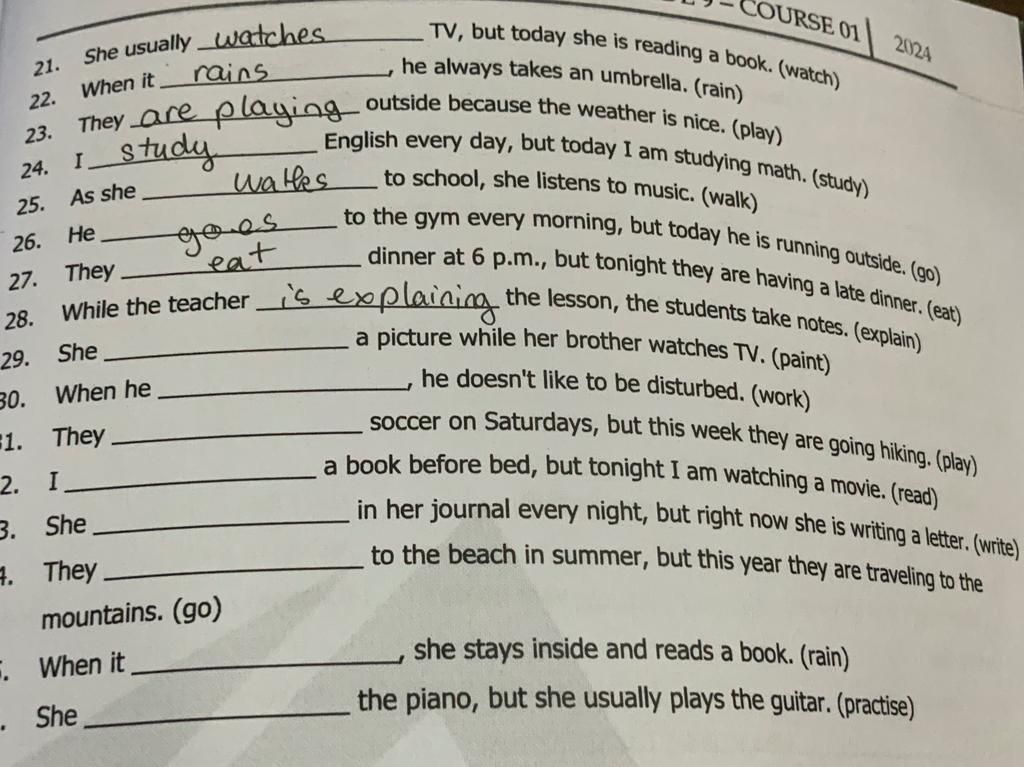 – COURSE 01 | 2024
21. She usually watches TV, but today she is reading a book. (watch)
22. When it rains, he always takes an umbrella. (rain)
23. They are playing outside because the weather is nice. (play)
24. I study English every day, but today I am studying math. (study)
25. As she walks to school, she listens to music. (walk)
26. He goes to the gym every morning, but today he is running outside. (go)
27. They eat dinner at 6 p.m., but tonight they are having a late dinner. (eat)
28. While the teacher is explaining the lesson, the students take notes. (explain)
29. She ____________ a picture while her brother watches TV. (paint)
30. When he ____________, he doesn't like to be disturbed. (work)
1. They ____________ soccer on Saturdays, but this week they are going hiking. (play)
2. I ____________ a book before bed, but tonight I am watching a movie. (read)
3. She ____________ in her journal every night, but right now she is writing a letter. (write)
4. They ____________ to the beach in summer, but this year they are traveling to the
mountains. (go)
. When it ____________, she stays inside and reads a book. (rain)
. She ____________ the piano, but she usually plays the guitar. (practise)